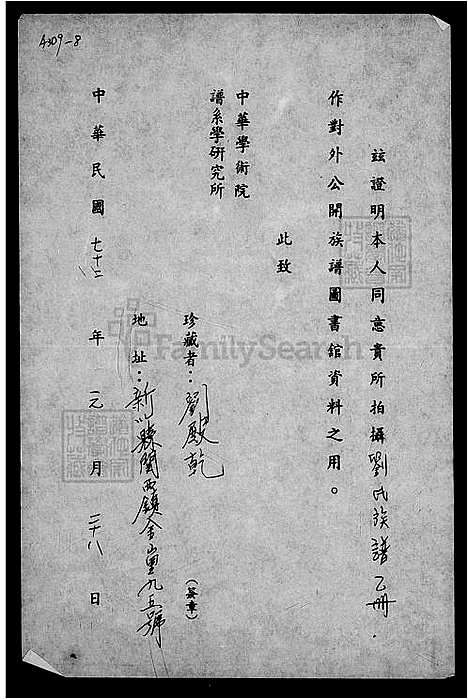 A309-8
茲證明本人同意貴所拍攝劉氏族譜乙冊.
作對外公開族譜圖書館資料之用。
此致
中華學術院
譜系學研究所
珍藏者：劉殿乾
(簽章)
地址：新竹縣關西鎮金山里九五號
中華民國七十二年元月二十八日
FamilySearch